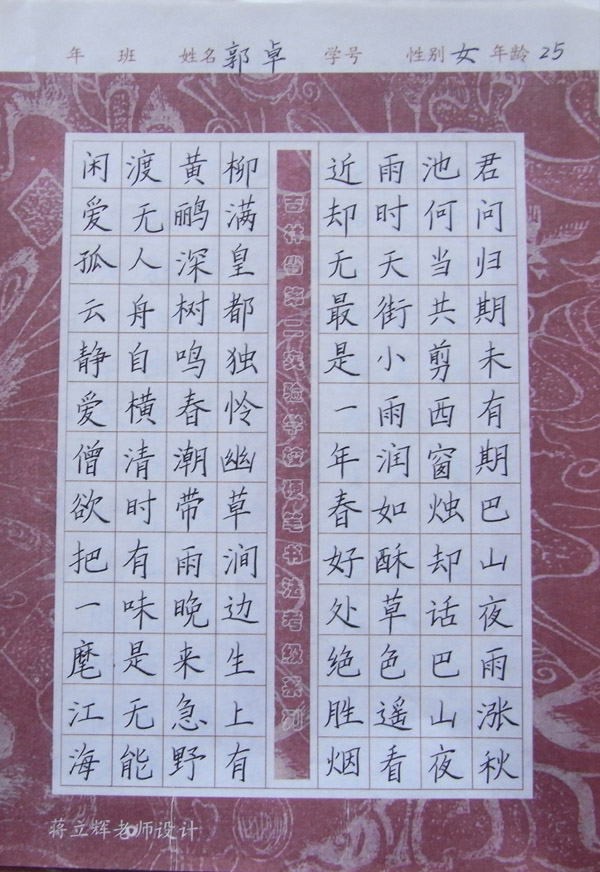 年 班 姓名 郭卓 学号 性别 女 年龄 25
君问归期未有期巴山夜雨涨秋
池何当共剪西窗烛却话巴山夜
雨时天街小雨润如酥草色遥看
近却无最是一年春好处绝胜烟
吉林省第二实验学校硬笔书法考级系列
柳满皇都独怜幽草涧边生上有
黄鹂深树鸣春潮带雨晚来急野
渡无人舟自横清时有味是无能
闲爱孤云静爱僧欲把一麾江海
蒋立辉老师设计